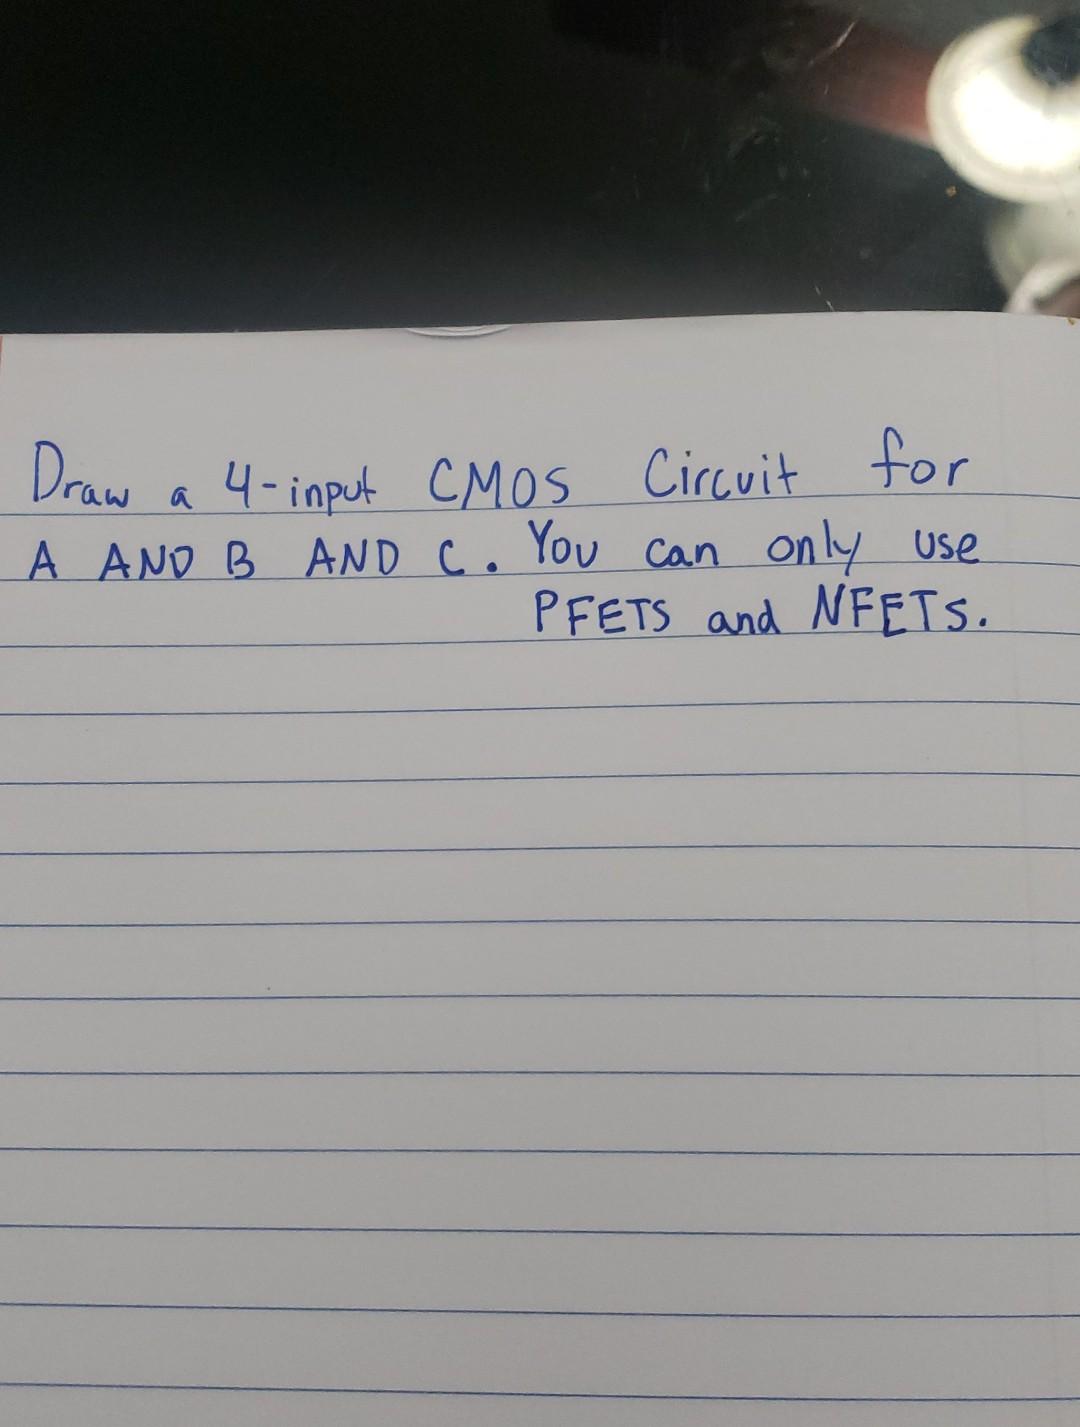 Draw a 4-input CMOS Circuit for
A AND B AND C. You can only use
PFETS and NFETS.